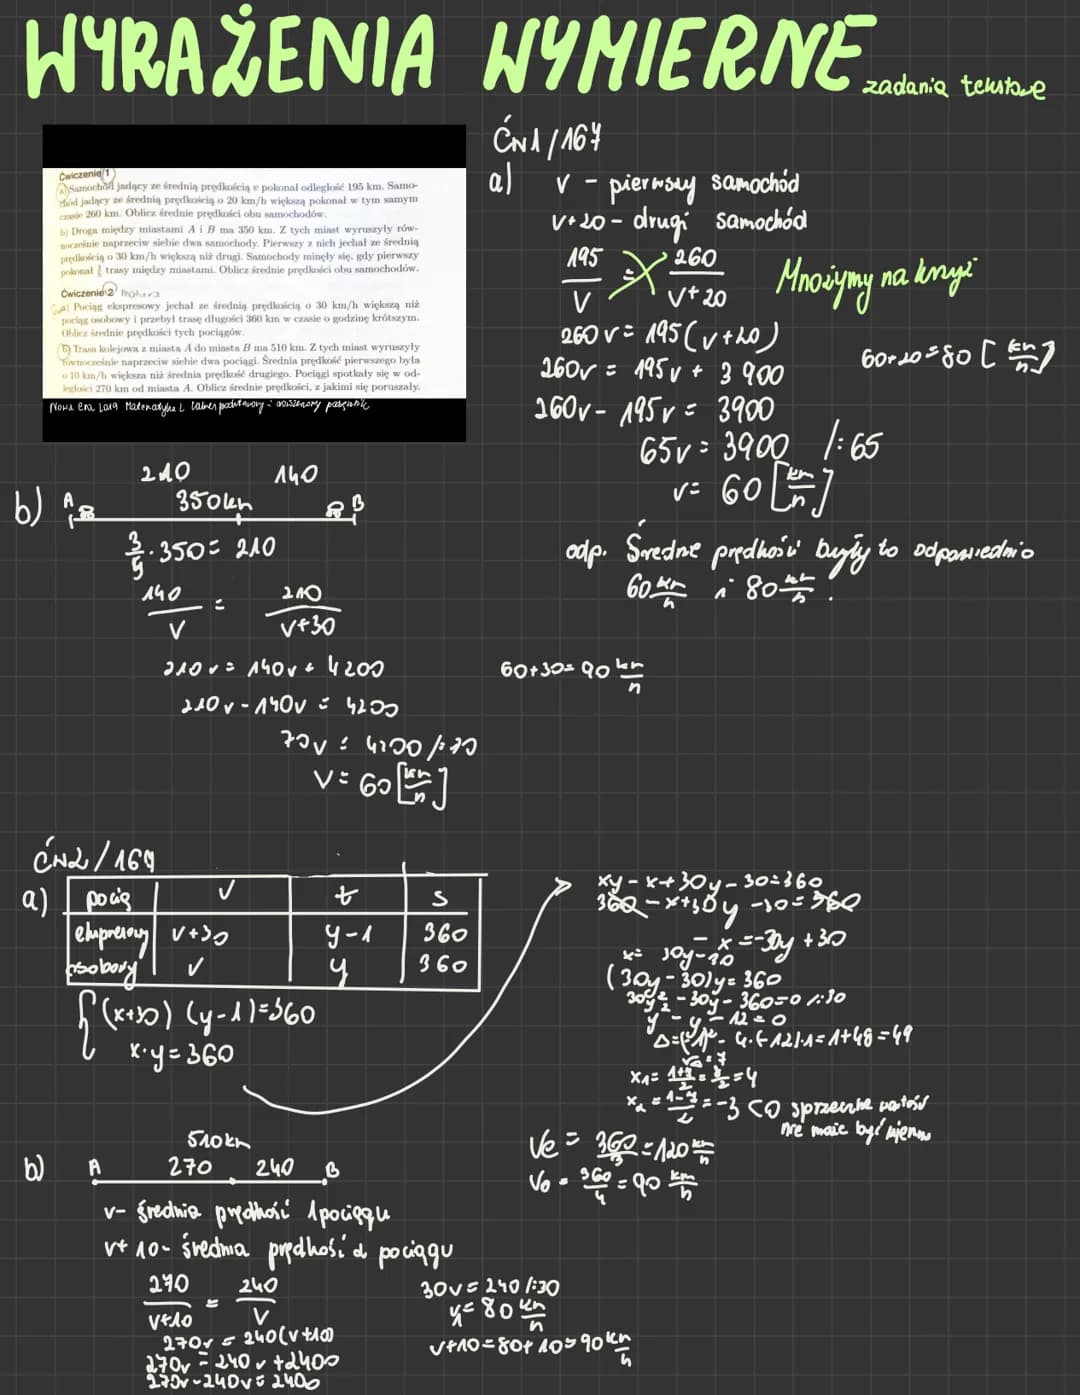 WYRAŻENIA WYMIERNE
zadania tekstowe
Ćwiczenie 1
a) Samochód jadący ze średnią prędkością v pokonał odległość 195 km. Samo-
chód jadący ze średnią prędkością o 20 km/h większą pokonał w tym samym
czasie 260 km. Oblicz średnie prędkości obu samochodów.
b) Droga między miastami A i B ma 350 km. Z tych miast wyruszyły rów-
nocześnie naprzeciw siebie dwa samochody. Pierwszy z nich jechał ze średnią
prędkością o 30 km/h większą niż drugi. Samochody minęły się, gdy pierwszy
pokonał 3/5 trasy między miastami. Oblicz średnie prędkości obu samochodów.
Ćwiczenie 2
a) Pociąg ekspresowy jechał ze średnią prędkością o 30 km/h większą niż
pociąg osobowy i przebył trasę długości 360 km w czasie o godzinę krótszym.
Oblicz średnie prędkości tych pociągów.
b) Trasa kolejowa z miasta A do miasta B ma 510 km. Z tych miast wyruszyły
równocześnie naprzeciw siebie dwa pociągi. Średnia prędkość pierwszego była
o 10 km/h większa niż średnia prędkość drugiego. Pociągi spotkały się w od-
ległości 270 km od miasta A. Oblicz średnie prędkości, z jakimi się poruszały.
Nowa Era 2019 Matematyka 2
ĆW1/167
a) v - pierwszy samochód
v+20 - drugi samochód
195/v = 260/v+20
Mnożymy na krzyż
260v = 195(v+20)
260v = 195v + 3900
260v - 195v = 3900
65v = 3900 /:65
v = 60 [km/h]
60+20=80 [km/h]
odp. Średnie prędkości były to odpowiednio
60 km/h i 80 km/h.
b) A 210 140 B
350km
3/5 · 350 = 210
140/v = 210/v+30
210v = 140v + 4200
210v - 140v = 4200
70v = 4200 /:70
v = 60 [km/h]
60+30=90 km/h
ĆW2/169
a) pociąg v t s
ekspresowy v+30 y-1 360
osobowy v y 360
(x+30)(y-1)=360
x·y=360
xy-x+30y-30=360
360-x+30y-30=360
-x=-30y+30
x=30y-30
(30y-30)y=360
30y²-30y-360=0 /:30
y²-y-12=0
Δ=(-1)²-4·(-12)·1=1+48=49
√Δ=7
x₁=1+7/2=8/2=4
x₂=1-7/2=-3 CO sprzeczne wartość
nie może być ujemna
Ve=360/3=120 km/h
Vo=360/4=90 km/h
b) 510km
A 270 240 B
v- średnia prędkość 1 pociągu
v+10- średnia prędkość 2 pociągu
270/v+10 = 240/v
270v = 240(v+10)
270v = 240v+2400
270v-240v=2400
30v=240 /:30
v=80 km/h
v+10=80+10=90 km/h